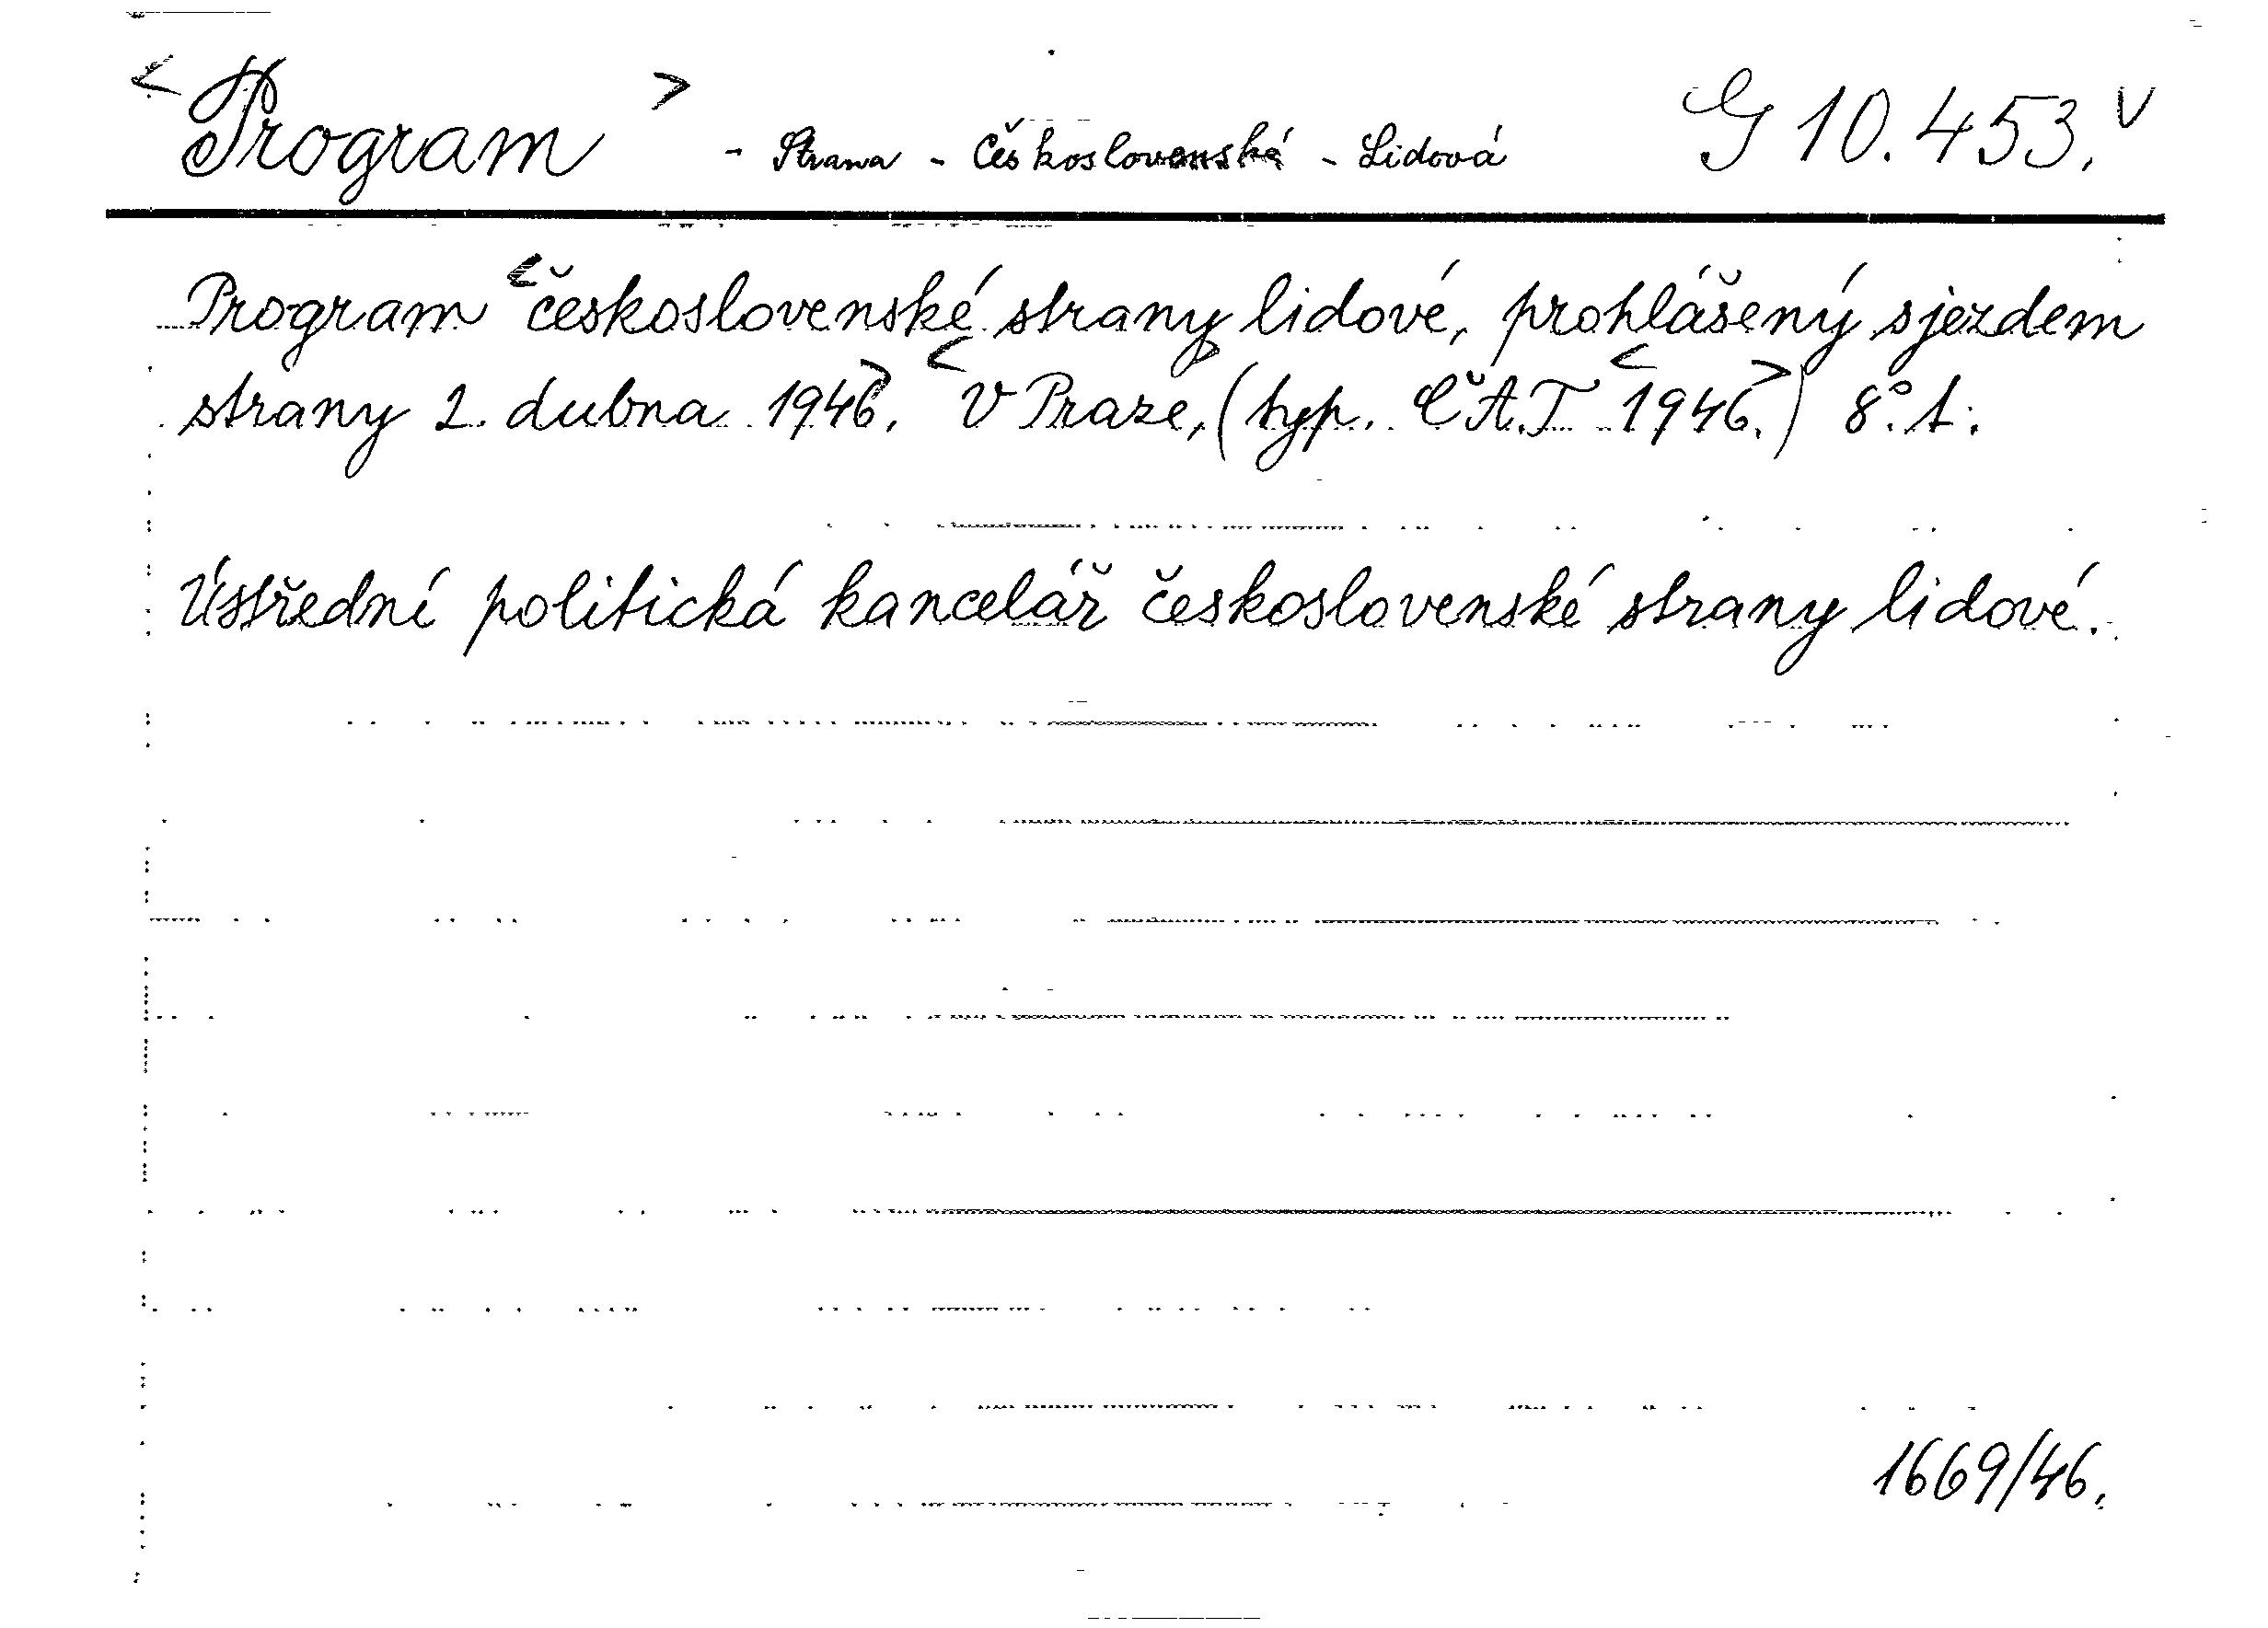 <Program> - Strana - Československá - Lidová G 10.453.
Program <československé strany lidové, prohlášený sjezdem
strany 2. dubna 1946>. <V Praze, (typ. ČAT <1946.>) 8°. 1.
Ústřední politická kancelář československé strany lidové.
1669/46.